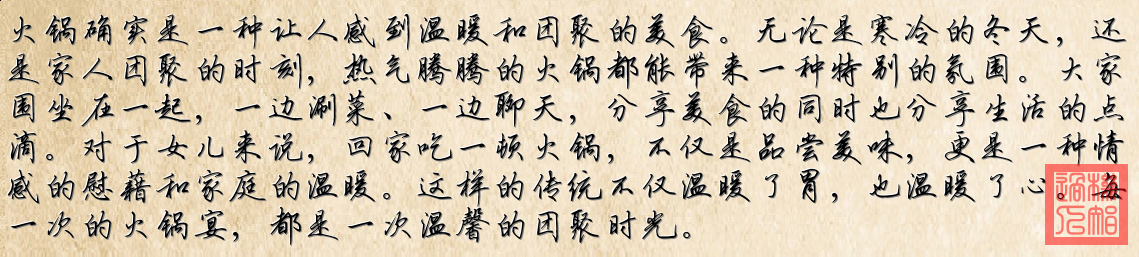 火锅确实是一种让人感到温暖和团聚的美食。无论是寒冷的冬天，还
是家人团聚的时刻，热气腾腾的火锅都能带来一种特别的氛围。大家
围坐在一起，一边涮菜、一边聊天，分享美食的同时也分享生活的点
滴。对于女儿来说，回家吃一顿火锅，不仅是品尝美味，更是一种情
感的慰藉和家庭的温暖。这样的传统不仅温暖了胃，也温暖了心。每
一次的火锅宴，都是一次温馨的团聚时光。